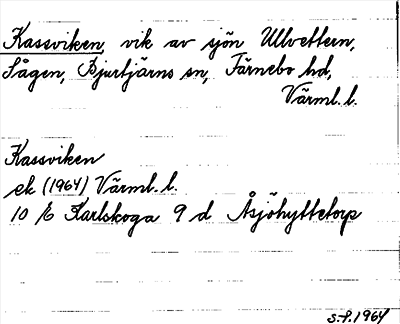 Kassviken, vik av sjön Ullvettern,
Sågen, Bjurtjärns sn, Färnebo hd,
Värml. l.
Kassviken
ek (1964) Värml. l.
10 E Karlskoga 9 d Åsjöhyttetorp
S.f. 1964